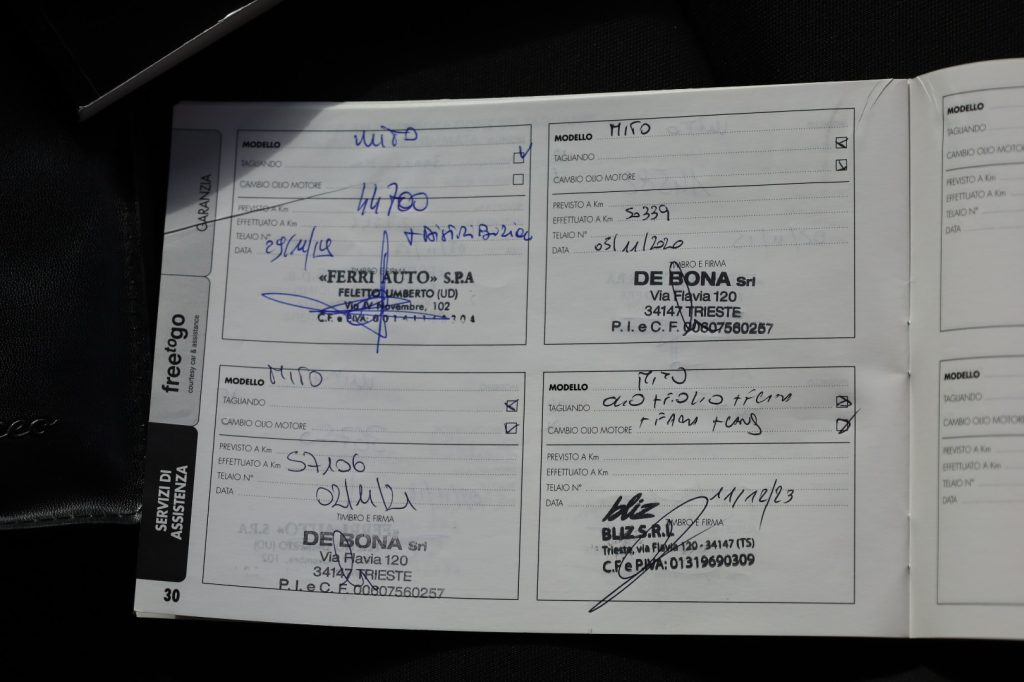 GARANZIA
freetogo
courtesy car & assistance
SERVIZI DI
ASSISTENZA
30
MODELLO MITO
TAGLIANDO
CAMBIO OLIO MOTORE
PREVISTO A Km 44700
EFFETTUATO A Km
TELAIO N°
DATA 29/11/19
TIMBRO E FIRMA
«FERRI AUTO» S.P.A
FELETTO UMBERTO (UD)
Via IV Novembre, 102
C.F. e P.IVA:
MODELLO MITO
TAGLIANDO
CAMBIO OLIO MOTORE
PREVISTO A Km
EFFETTUATO A Km 50339
TELAIO N°
DATA 03/11/2020
TIMBRO E FIRMA
DE BONA Srl
Via Flavia 120
34147 TRIESTE
P.I. e C.F. 00807560257
MODELLO MITO
TAGLIANDO
CAMBIO OLIO MOTORE
PREVISTO A Km
EFFETTUATO A Km 57106
TELAIO N°
DATA 02/11/21
TIMBRO E FIRMA
DE BONA Srl
Via Flavia 120
34147 TRIESTE
P.I. e C.F. 00807560257
MODELLO MITO
TAGLIANDO
CAMBIO OLIO MOTORE
PREVISTO A Km
EFFETTUATO A Km
TELAIO N°
DATA 11/12/23
TIMBRO E FIRMA
bliz
BLIZ S.R.L
Trieste, via Flavia 120 - 34147 (TS)
C.F e P.IVA: 01319690309
MODELLO
TAGLIANDO
CAMBIO OLIO MOTORE
PREVISTO A Km
EFFETTUATO A Km
TELAIO N°
DATA
MODELLO
TAGLIANDO
CAMBIO OLIO MOTORE
PREVISTO A Km
EFFETTUATO A Km
TELAIO N°
DATA